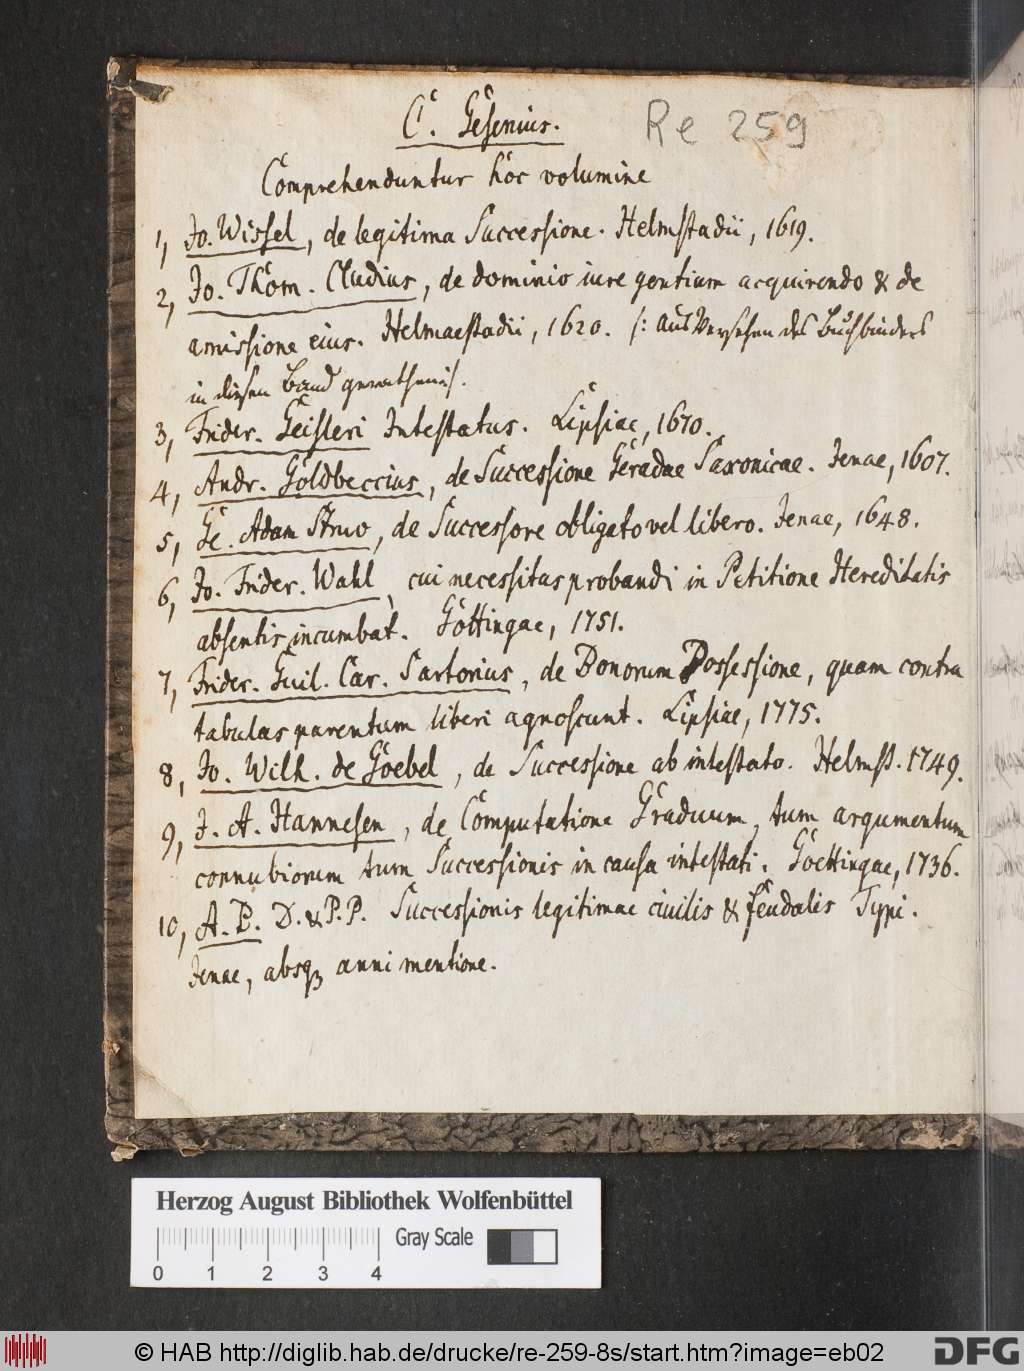 C. Gesenius.
Re 259
Comprehenduntur hoc volumine
1, Jo. Wissel, de legitima Successione. Helmstadii, 1619.
2, Jo. Thom. Cludius, de dominio iure gentium acquirendo & de
amissione eius. Helmaestadii, 1620. (: aus Versehen des Buchbinders
in diesen Band gerathen :)
3, Frider. Geisleri Intestatus. Lipsiae, 1670.
4, Andr. Goldbeccius, de Successione Geradae Saxonicae. Jenae, 1607.
5, Ge. Adam Struv, de Successore obligato vel libero. Jenae, 1648.
6, Jo. Frider. Wahl, cui necessitas probandi in Petitione Hereditatis
absentis incumbat. Göttingae, 1751.
7, Frider. Guil. Car. Sartorius, de Bonorum Possessione, quam contra
tabulas parentum liberi agnoscunt. Lipsiae, 1775.
8, Jo. Wilh. de Goebel, de Successione ab intestato. Helmst. 1749.
9, J. A. Hannesen, de Computatione Graduum, tum argumentum
connubiorum tum Successionis in causa intestati. Goettingae, 1736.
10, A. B. D. & P. P. Successionis legitimae civilis & feudalis Typi.
Jenae, absq; anni mentione.
Herzog August Bibliothek Wolfenbüttel
Gray Scale
0 1 2 3 4
© HAB http://diglib.hab.de/drucke/re-259-8s/start.htm?image=eb02
DFG